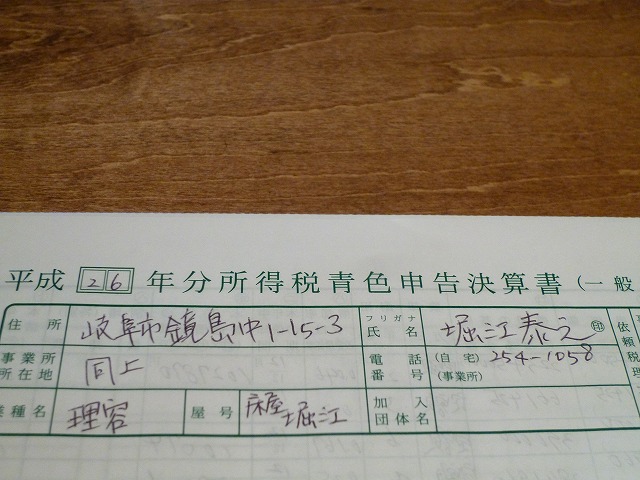 平成 26 年分所得税青色申告決算書 (一般
住所 岐阜市鏡島中1-15-3 フリガナ 氏名 堀江泰之 印
事業所所在地 同上 電話番号 (自宅) 254-1058 (事業所)
業種名 理容 屋号 床屋堀江 加入団体名
依頼税理